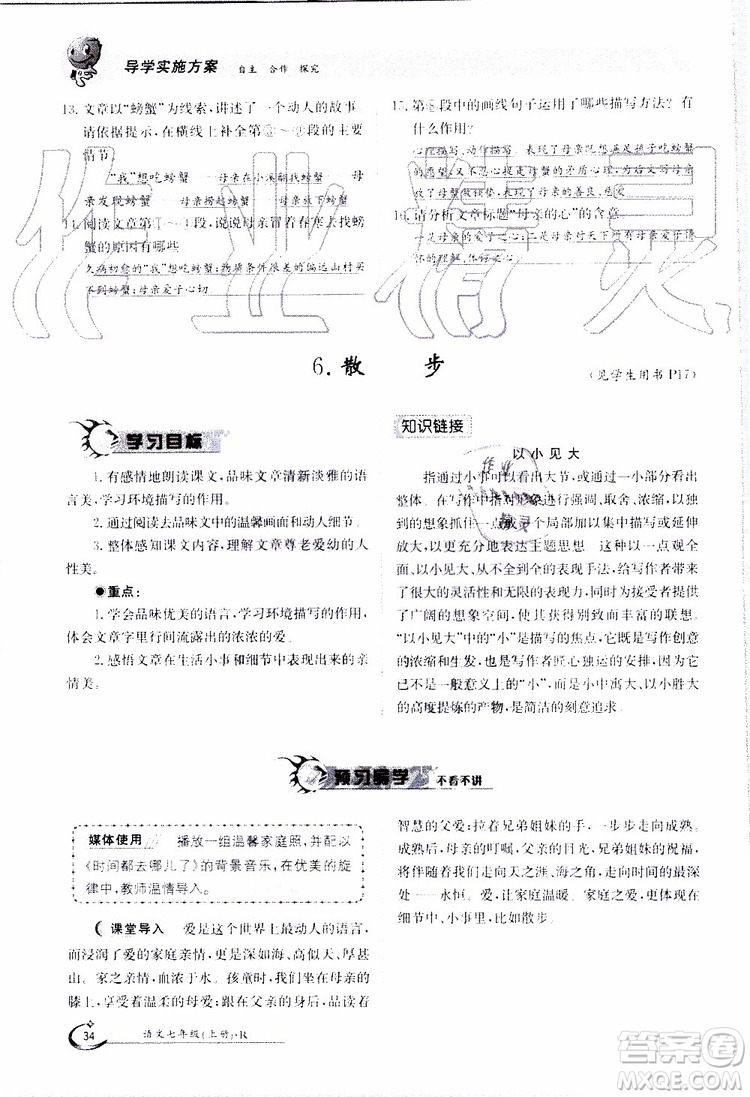 导学实施方案 自主 合作 探究
13. 文章以“螃蟹”为线索，讲述了一个动人的故事
请依据提示，在横线上补全第③～⑨段的主要
情节
“我”想吃螃蟹 母亲在小溪翻找螃蟹 母
亲发现螃蟹 母亲捞起螃蟹 母亲放下螃蟹
14. 阅读文章第 段，说说母亲冒着春寒去找螃
蟹的原因有哪些
久病初愈的“我”想吃螃蟹；物质条件很差的偏远山村买
不到螃蟹；母亲爱子心切
15. 第⑧段中的画线句子运用了哪些描写方法？有
什么作用？
心理描写、动作描写，写出了母亲想捉螃蟹给儿子吃的
愿望，又不忍心伤害母螃蟹的矛盾心理，为后文写母
亲放了螃蟹做铺垫，表现了母亲的慈爱
16. 请分析文章标题“母亲的心”的含意
一是母亲的爱子之心；二是母亲对天下母亲的关爱之心
6. 散 步
（见学生用书 P17）
学习目标
1. 有感情地朗读课文，品味文章清新淡雅的语
言美，学习环境描写的作用。
2. 通过阅读去品味文中的温馨画面和动人细节。
3. 整体感知课文内容，理解文章尊老爱幼的人
性美。
●重点：
1. 学会品味优美的语言，学习环境描写的作用，
体会文章字里行间流露出的浓浓的爱。
2. 感悟文章在生活小事和细节中表现出来的亲
情美。
知识链接
以小见大
指通过小事可以看出大节，或通过一小部分看出
整体。在写作中指对描写对象进行强调、取舍、浓缩，以独
到的想象抓住一点或一个局部加以集中描写或延伸
放大，以更充分地表达主题思想 这种以一点观全面、
以小见大、从不全到全的表现手法，给写作者带来了很
大的灵活性和无限的表现力，同时为接受者提供
了广阔的想象空间，使其获得生动而丰富的联想。
“以小见大”中的“小”是描写的焦点，它既是写作创意
的浓缩和生发，也是写作者匠心独运的安排，因而它
已不是一般意义上的“小”，而是小中寓大、以小胜大
的高度提炼的产物，是简洁的刻意追求。
预习导学 不看不讲
媒体使用 播放一组温馨家庭照，并配以
《时间都去哪儿了》的背景音乐，在优美的旋
律中，教师温情导入。
课堂导入 爱是这个世界上最动人的语言，
而浸润了爱的家庭亲情，更是深如海、高似天、厚甚
山。家之亲情，血浓于水。孩童时，我们偎在母亲的
膝上，享受着温柔的母爱；跟在父亲的身后，品读着
智慧的父爱；拉着兄弟姐妹的手，一步步走向成熟。
成熟后，母亲的叮嘱，父亲的目光，兄弟姐妹的祝福，
将伴我们走向远方，走向天之涯、海之角，走向时间的尽头
——永恒。爱，让家庭温暖。家庭之爱，体现在
细节中、小事里，比如散步。
34 语文七年级（上册）·R
作业精灵
作业精灵
答案圈
MXQE.COM